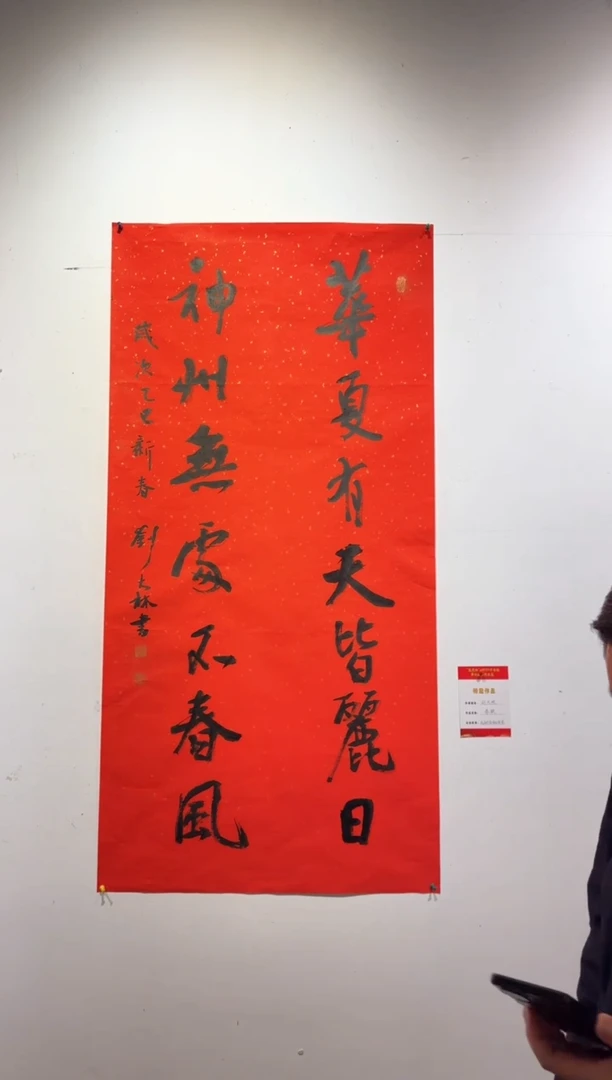 華夏有天皆麗日
神州無處不春風
歲次乙巳新春 劉大林書